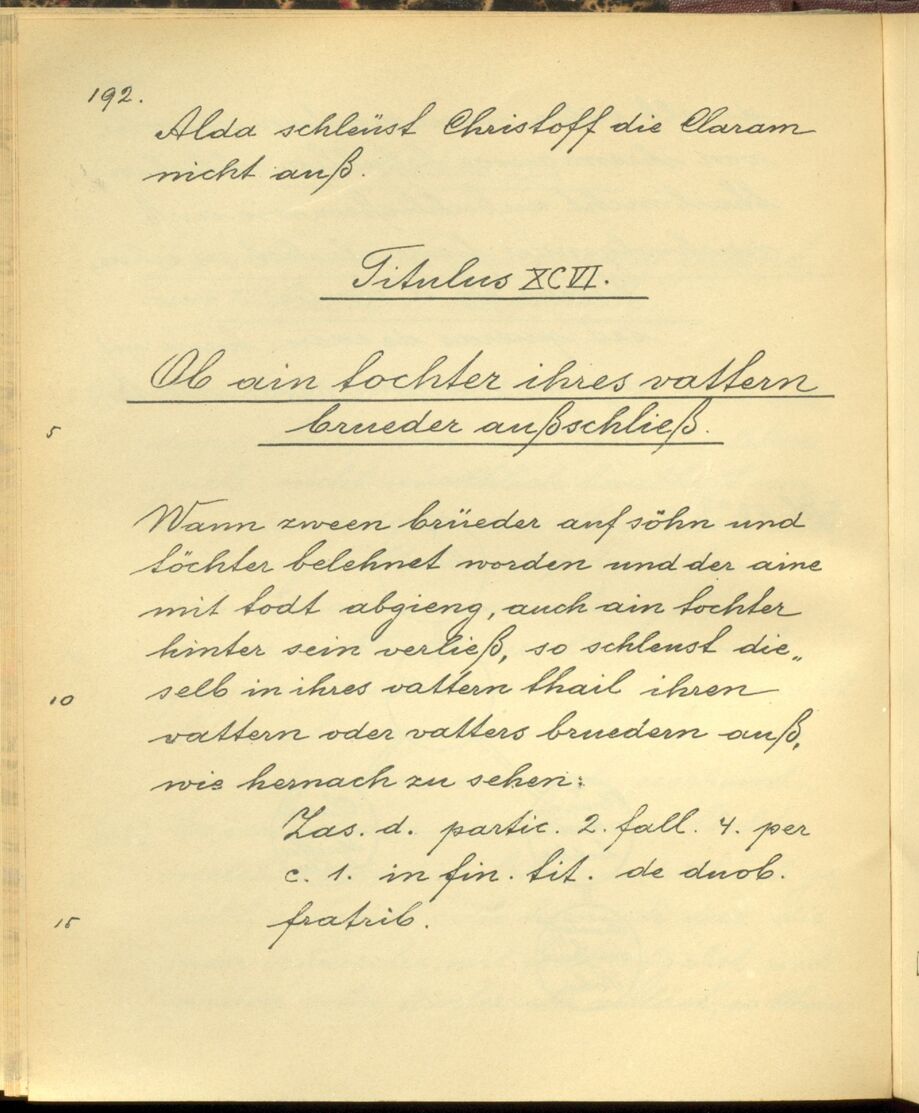 192.
Alda schleüst Christoff die Claram
nicht auß.
Titulus XCVI.
Ob ain tochter ihres vattern
5
brueder außschließ.
Wann zween brüeder auf söhn und
töchter belehnet worden und der aine
mit todt abgieng, auch ain tochter
hinter sein verließ, so schleust die„
10
selb in ihres vattern thail ihren
vattern oder vatters bruedern auß,
wie hernach zu sehen:
Zas. d. partic. 2. fall. 4. per
c. 1. in fin. tit. de duob.
15
fratrib.